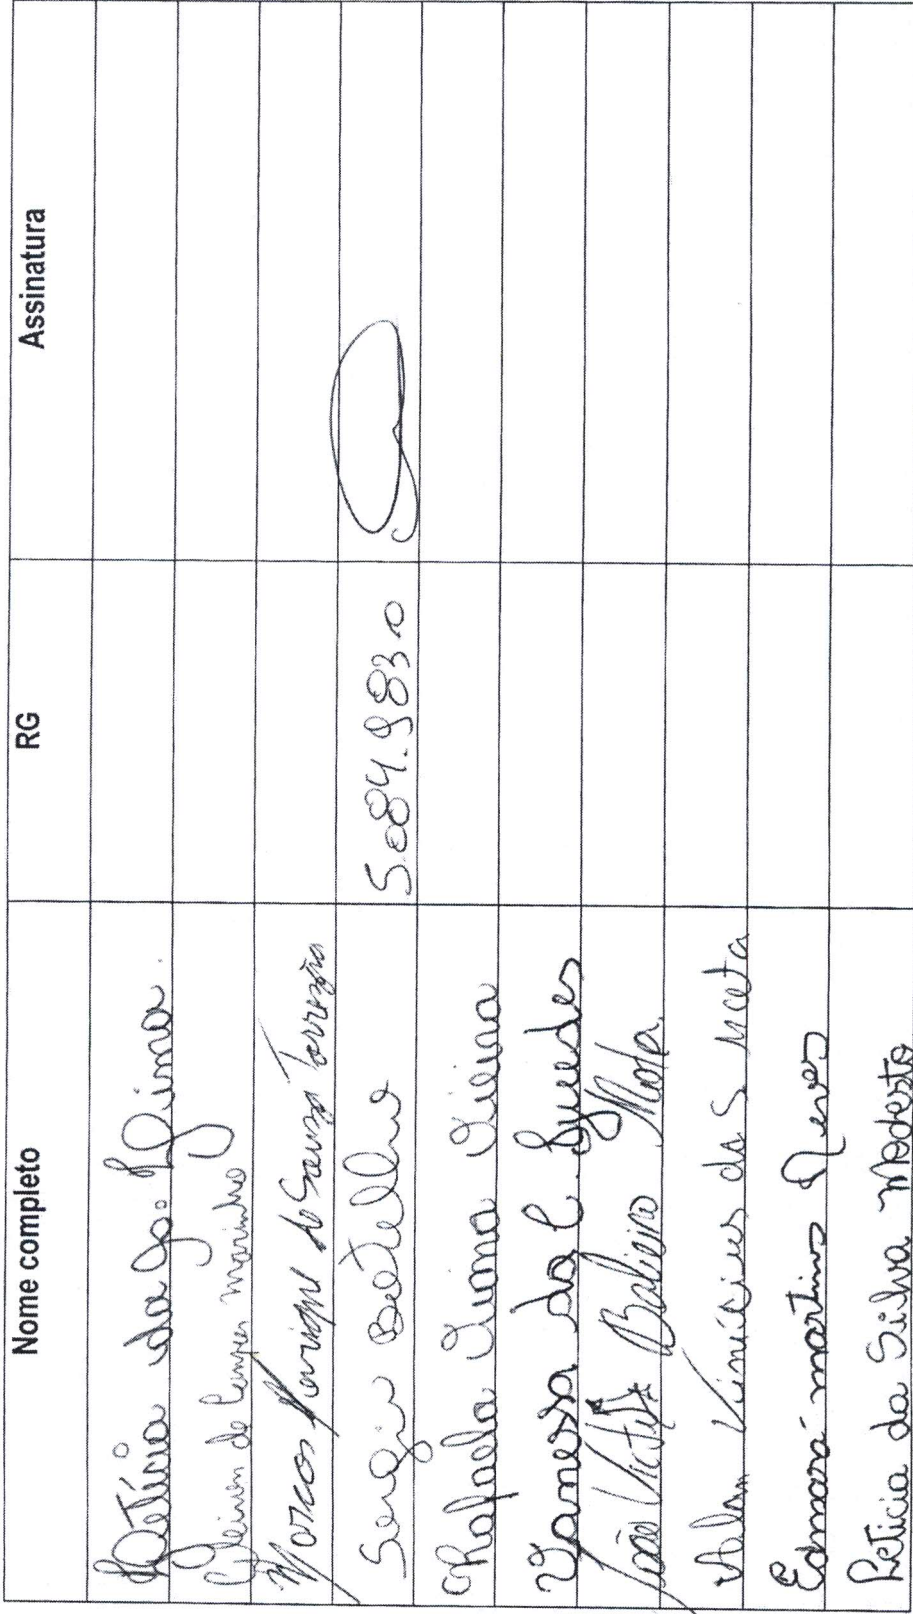 Nome completo RG Assinatura
Letícia da Lima.
de Campos marinho
Marcos Henrique de Souza
Sergio Botelho 5.084.983.0
Rafaela Viana Vieira
Vanessa da C. Guedes
João Victor Balieiro Mota
Vinícius da S.
Edmará martins Neves
Letícia da Silva Modesto